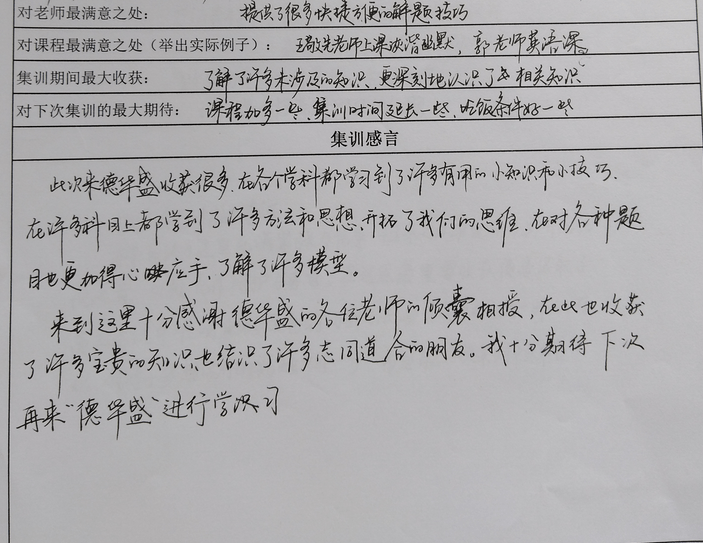 对老师最满意之处: 提供了很多快捷方便的解题技巧
对课程最满意之处（举出实际例子）: 敬先老师上课诙谐幽默，郭老师英语课
集训期间最大收获: 了解了许多未涉及的知识、更深刻地认识了相关知识
对下次集训的最大期待: 课程加多一些、集训时间延长一些、吃饭条件好一些
集训感言
此次来德华盛收获很多、在各个学科都学习到了许多有用的小知识和小技巧、
在许多科目上都学到了许多方法和思想、开拓了我们的思维、在对各种题
目也更加得心应手、了解了许多模型。
来到这里十分感谢德华盛的各位老师的倾囊相授，在此也收获
了许多宝贵的知识，也结识了许多志同道合的朋友。我十分期待下次
再来“德华盛”进行学习